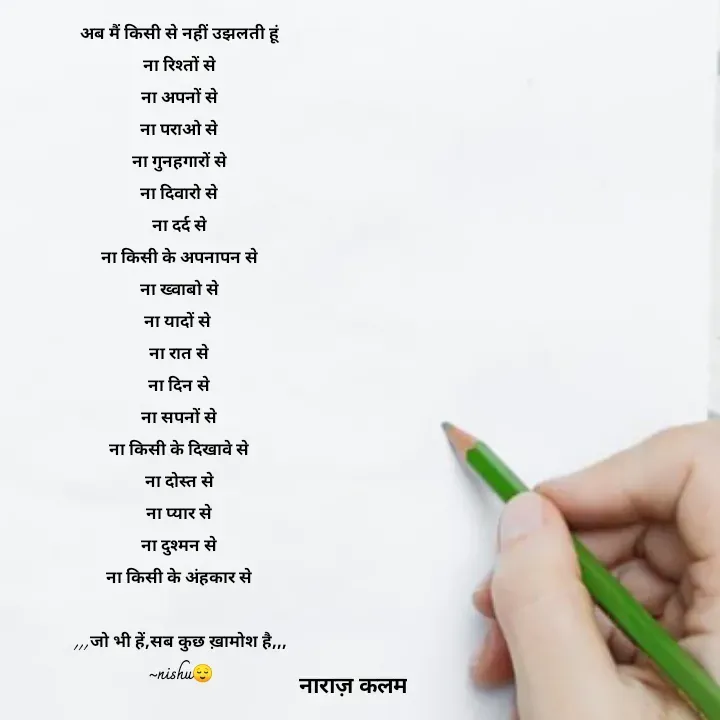 अब मैं किसी से नहीं उझलती हूं
ना रिश्तों से
ना अपनों से
ना पराओ से
ना गुनहगारों से
ना दिवारो से
ना दर्द से
ना किसी के अपनापन से
ना ख्वाबो से
ना यादों से
ना रात से
ना दिन से
ना सपनों से
ना किसी के दिखावे से
ना दोस्त से
ना प्यार से
ना दुश्मन से
ना किसी के अंहकार से
,,,जो भी हें,सब कुछ ख़ामोश है,,,
~nishu😌
नाराज़ कलम